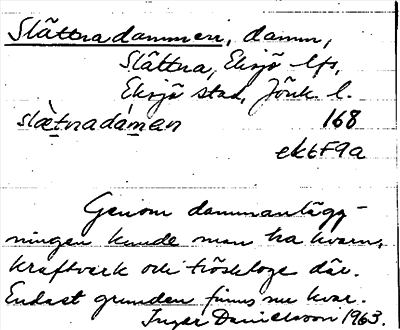 Slättnadammen, damm,
Slättna, Eksjö lfs,
Eksjö stad, Jönk. l.
slæ̀tnadáman 168
ek6F9a
Genom dammanlägg-
ningen kunde man ha kvarn,
kraftverk och tröskloge där.
Endast grunden finns nu kvar.
Inger Danielsson 1963.